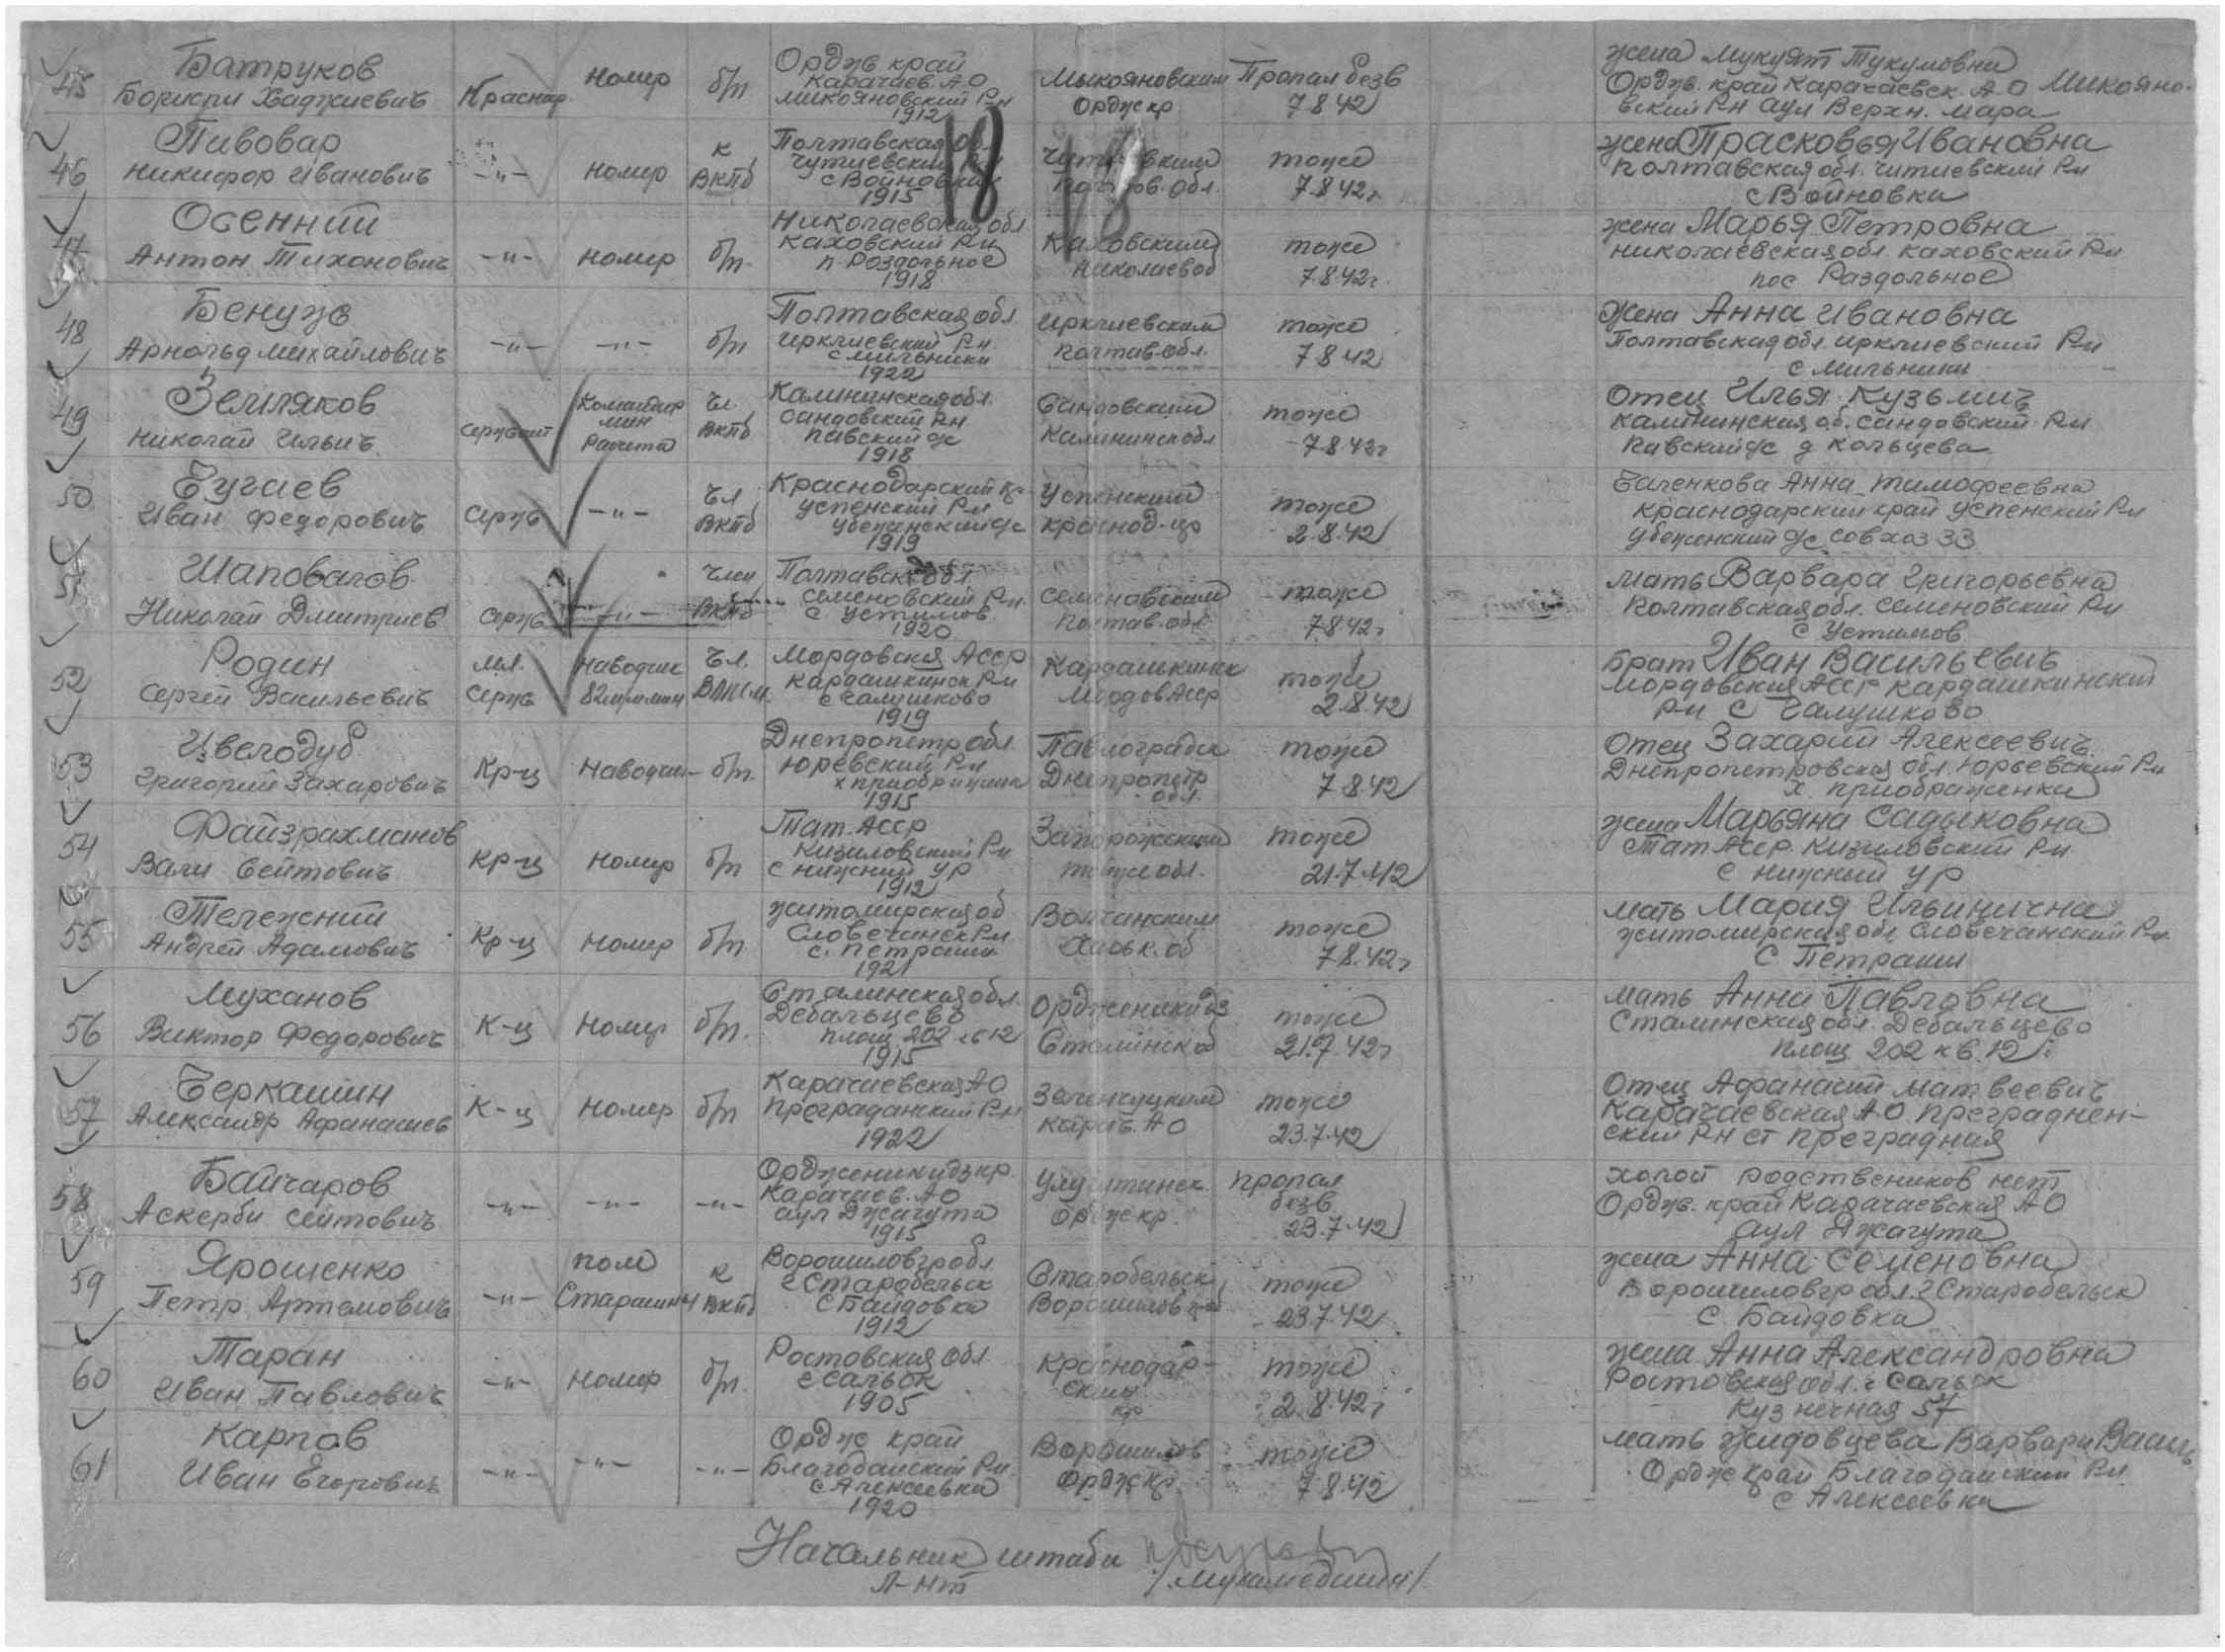 45 Батруков Бориспи Хаджиевич Красноар номер б/п Ордж край Карачаев. АО Микояновский Р-н 1912 Мыкояновским Ордж кр Пропал безв 7 8 42 жена Мукуят Тукумовна Ордж. край Карачаевск. А.О Микояновский Р-н аул Верхн. Мара
46 Пивовар Никифор Иванович -"- номер к ВКПб Полтавская об. Чутиевский с Войновка 1915 тоже 7.8.42г жена Прасковья Ивановна Полтавская обл. Чутиевский Р-н с Войновка
47 Осенний Антон Тихонович -"- номер б/п. Николаевская обл Каховский Р-н п Роздольное 1918 Каховским Николаев об тоже 7.8.42г. жена Марья Петровна Николаевская обл. Каховский Р-н пос Раздольное
48 Бенудз Арнольд Михайлович -"- -"- б/п Полтавская обл Ирклиевский Р-н с Мильники 1922 Ирклиевским Полтав.обл. тоже 7 8 42 Жена Анна Ивановна Полтавская обл. Ирклиевский Р-н с Мильники
49 Земляков Николай Ильич Сержант Командир мин Расчета Чл ВКПб Калининская обл. Сандовский Р-н Павский с/с 1918 Сандовский Калининск обл тоже 7.8.42г Отец Илья Кузьмич Калининская об. Сандовский Р-н Павский с/с д Кольцева
50 Чугаев Иван Федорович Серж -"- Чл ВКПб Краснодарский кр Успенский Р-н Убеженский с/с 1919 Успенский Краснод. кр тоже 2.8.42 Чаленкова Анна Тимофеевна Краснодарский край Успенский Р-н Убеженский с/с совхоз 33
51 Шаповалов Николай Дмитриев Серж -"- член ВКПб Полтавск обл Семеновский Р-н. с Устимов 1920 Семеновским Полтав. обл тоже 7.8.42г мать Варвара Григорьевна Полтавская обл. Семеновский Р-н с Устимов
52 Родин Сергей Васильевич мл. Серж Наводчик 82мм мин Чл. ВЛКСМ. Мордовская АССР Кардашкинск Р-н с Чалушково 1919 Кардашкинск Мордов АССР тоже 2.8.42 Брат Иван Васильевич Мордовская АССР Кардашкинский Р-н с Чалушково
53 Цвелодуб Григорий Захарович Кр-ц Наводчик б/п. Днепропетр обл. Юревский Р-н 1915 Павлоградск Днепропетр обл. тоже 7 8 42 Отец Захарий Алексеевич. Днепропетровская обл. Юрьевский Р-н х. приображенка
54 Файзрахманов Вали Сеитович Кр-ц номер б/п Тат. АССР Кизиловский Р-н с Нижний Ур 1912 Запорожским тоже 21.7.42 жена Марьяна Садыковна Тат АССР. Кизиловский Р-н с Нижный Ур
55 Тележний Андрей Адамович Кр-ц номер б/п Житомирская об Словечанск Р-н с. Петраши 1921 Волчанским Харьк. об тоже 7.8.42г мать Мария Ильинична Житомирская обл Словечанский Р-н с Петраши
56 Муханов Виктор Федорович К-ц номер б/п. Сталинская обл. Дебальцево площ 202 кв 12 1915 Орджоникидз Сталинск об тоже 21.7.42г мать Анна Павловна Сталинская обл. Дебальцево площ 202 кв. 12
57 Черкашин Александр Афанасиев К-ц номер б/п Карачаевская АО Преграданский Р-н 1922 Зеленчуцким Карач. АО тоже 23.7.42 Отец Афанасий Матвеевич Карачаевская АО Преграднен-ский Р-н ст Преградная
58 Байчаров Аскерби Сеитович -"- -"- -"- Орджоникидз кр. Карачаев. АО аул Джагута 1915 Ордж кр. пропал безв. 23.7.42 холост родствеников нет Ордж. край Карачаевская АО аул Джагута
59 Ярошенко Петр Артемович -"- пом Старшины к ВКПб Ворошиловгр обл г Старобельск с Байдовка 1912 Старобельск Ворошиловград тоже 23.7.42 жена Анна Семеновна Ворошиловгр обл г Старобельск с. Байдовка
60 Таран Иван Павлович -"- номер б/п. Ростовская обл г Сальск 1905 Краснодар-ским кр тоже 2.8.42г жена Анна Александровна Ростовская обл. г Сальск Кузнечная 57
61 Карпов Иван Егорович -"- -"- -"- Ордж край Благодаиский Р-н. с Алексеевка 1920 Ворошилов Ордж кр. тоже 7 8.42 мать Жидовцева Варвара Василь Ордж край Благодаиский Р-н с Алексеевка
18
Начальник штаба
Л-нт /Мухамедшин/